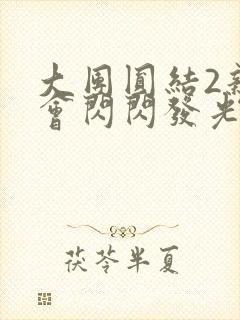 大團圓結2新
會閃閃發光
茯苓半夏